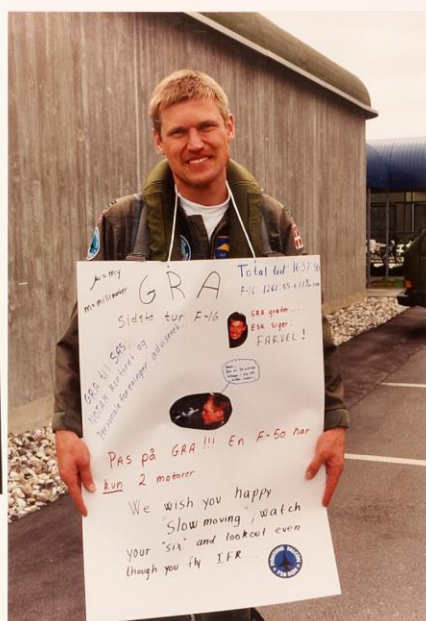 GRA
Total tid: 1637:50
Sidste tur F-16
GRA græder...
ESK siger
FARVEL!
GRA til SAS!
NORAK kontoret og
Personale foreninger adviseret...
Pas på GRA!!! En F-50 har
kun 2 motorer
We wish you happy
"Slow moving", watch
your "six" and lookout even
though you fly IFR...